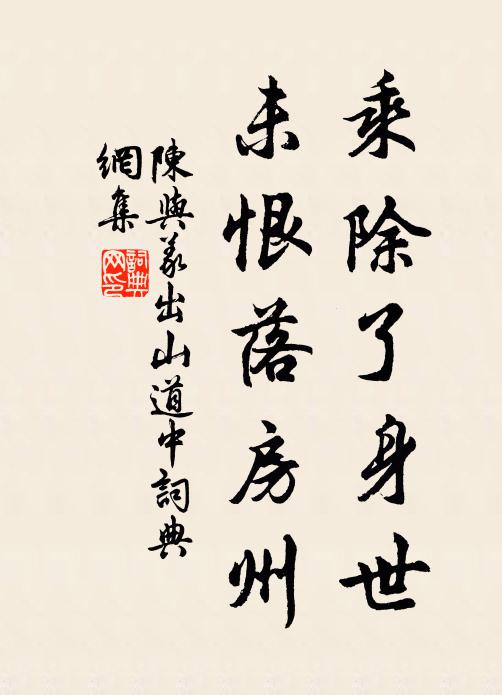 乘除了身世
未恨落房州
陳與義出山道中詞典
網集
詞典
网印